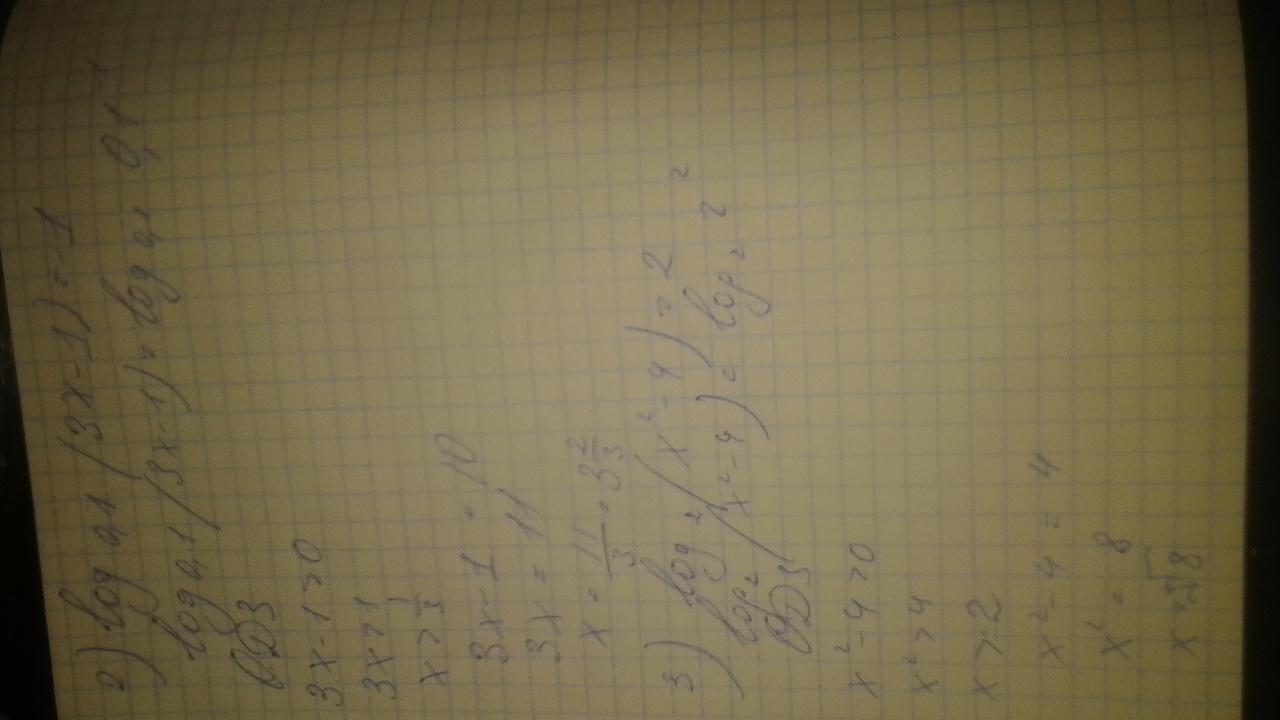 2) log 0,1 (3x-1) = -1
log 0,1 (3x-1) = log 0,1 0,1⁻¹
ОДЗ
3x-1>0
3x>1
x>1/3
3x-1=10
3x=11
x=11/3=3 2/3
3) log₂(x²-4)=2
log₂(x²-4)=log₂ 2²
ОДЗ
x²-4>0
x²>4
x>2
x²-4=4
x²=8
x=√8